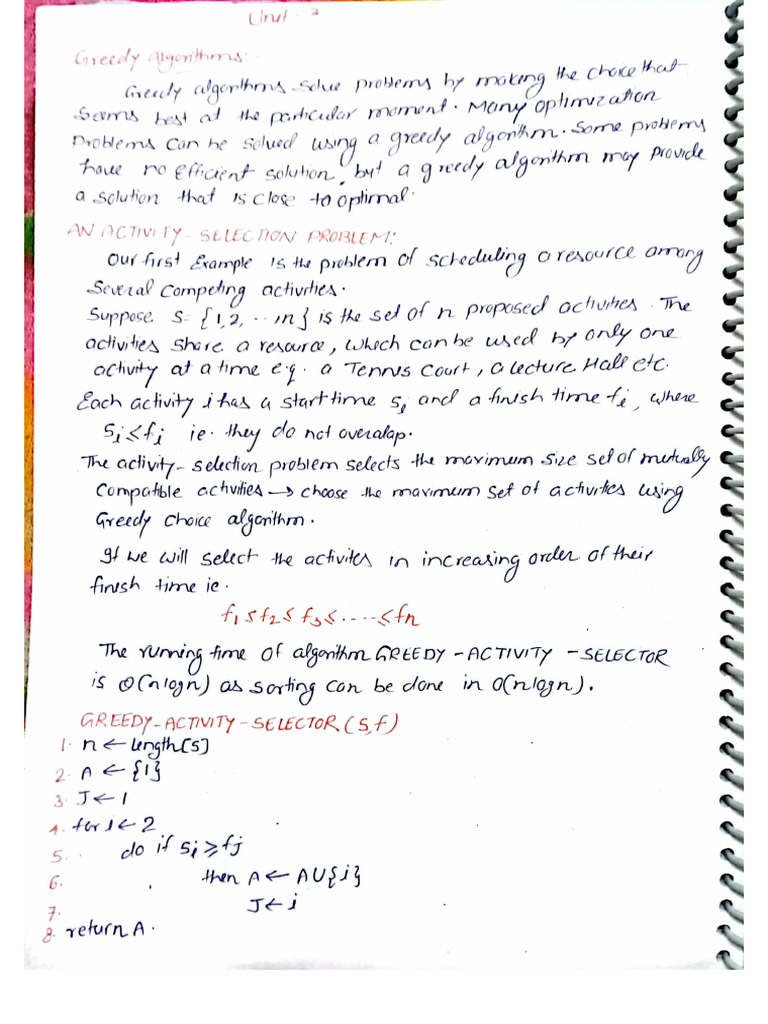 Unit - 2
Greedy Algorithms:-
Greedy algorithms solve problems by making the choice that
seems best at the particular moment. Many optimization
problems can be solved using a greedy algorithm. Some problems
have no efficient solution, but a greedy algorithm may provide
a solution that is close to optimal.
AN ACTIVITY - SELECTION PROBLEM:
Our first Example is the problem of scheduling a resource among
Several Competing activities.
Suppose S = {1,2, ..,n} is the set of n proposed activities. The
activities share a resource, which can be used by only one
activity at a time e.g. a Tennis Court, a lecture Hall etc.
Each activity i has a start time si and a finish time fi, where
si ≤ fi ie. they do not overalap.
The activity-selection problem selects the maximum size set of mutually
Compatible activities → choose the maximum set of activities using
Greedy choice algorithm.
If we will select the activites in increasing order of their
finish time ie.
f1 ≤ f2 ≤ f3 ≤ .... ≤ fn
The running time of algorithm GREEDY - ACTIVITY - SELECTOR
is θ(nlogn) as sorting can be done in O(nlogn).
GREEDY-ACTIVITY-SELECTOR(S,f)
1. n ← length[S]
2. A ← {1}
3. J ← 1
4. for i ← 2
5. do if si ≥ fj
6. then A ← A U {i}
7. J ← i
8. return A.